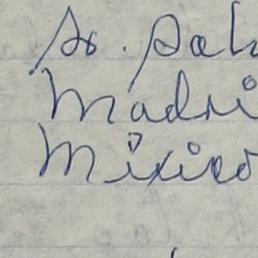 Sr. Sal
Madri
México